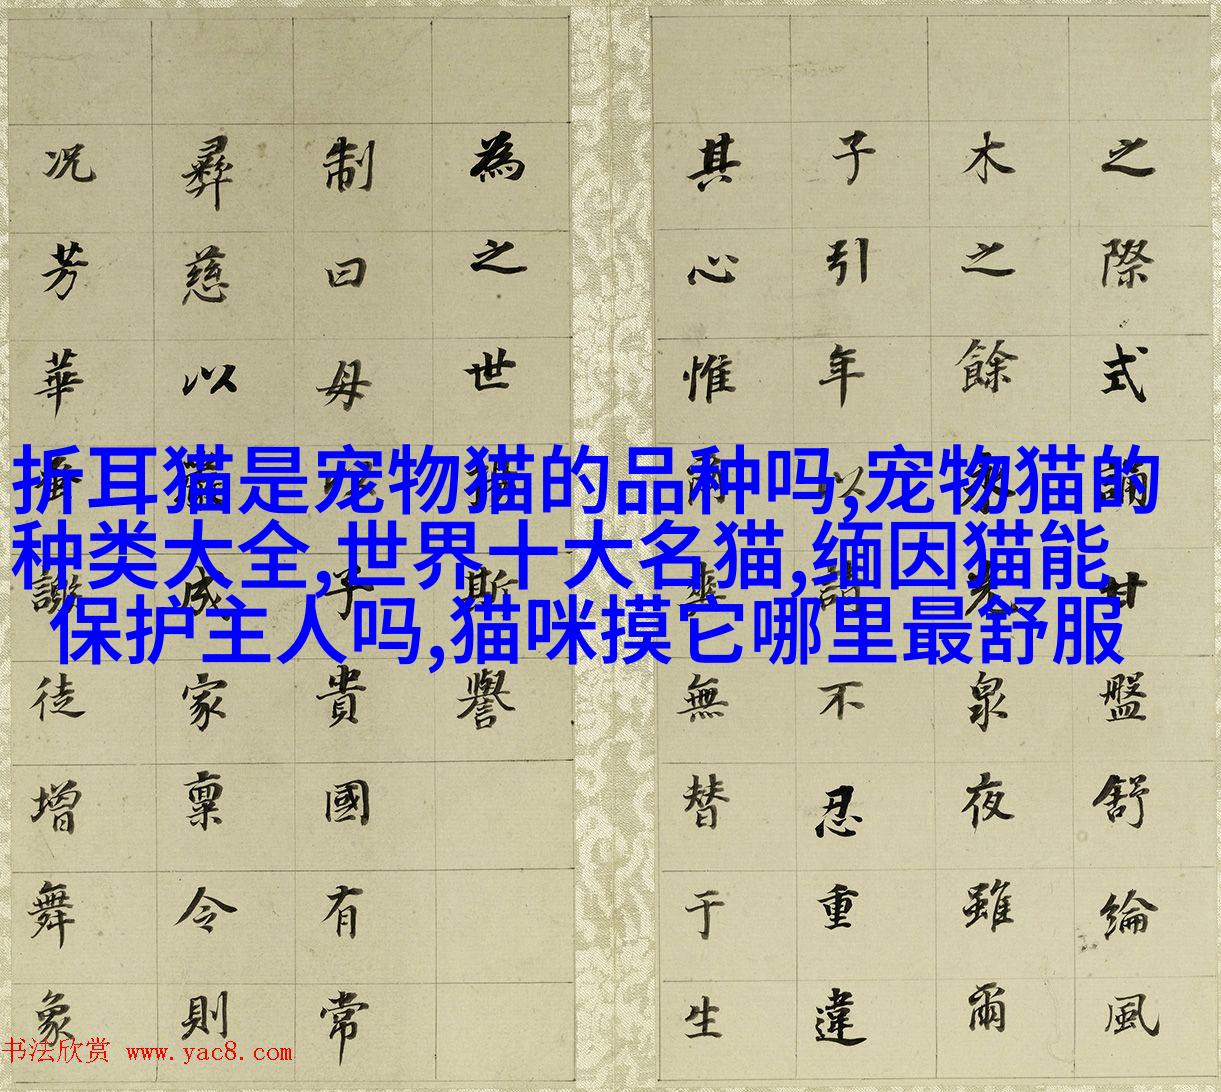 折耳猫是宠物猫的品种吗,宠物猫的
种类大全,世界十大名猫,缅因猫能
保护主人吗,猫咪摸它哪里最舒服
之際式誦甘盤舒綸風
木之餘光泉夜雖爾
子引年以請不忍重違
其心惟爾來無替于生
為之世斯譽
制曰母以子貴國有常
彝慈以成家稟令則
况芳華徒增舞象
书法欣赏 www.yac8.com